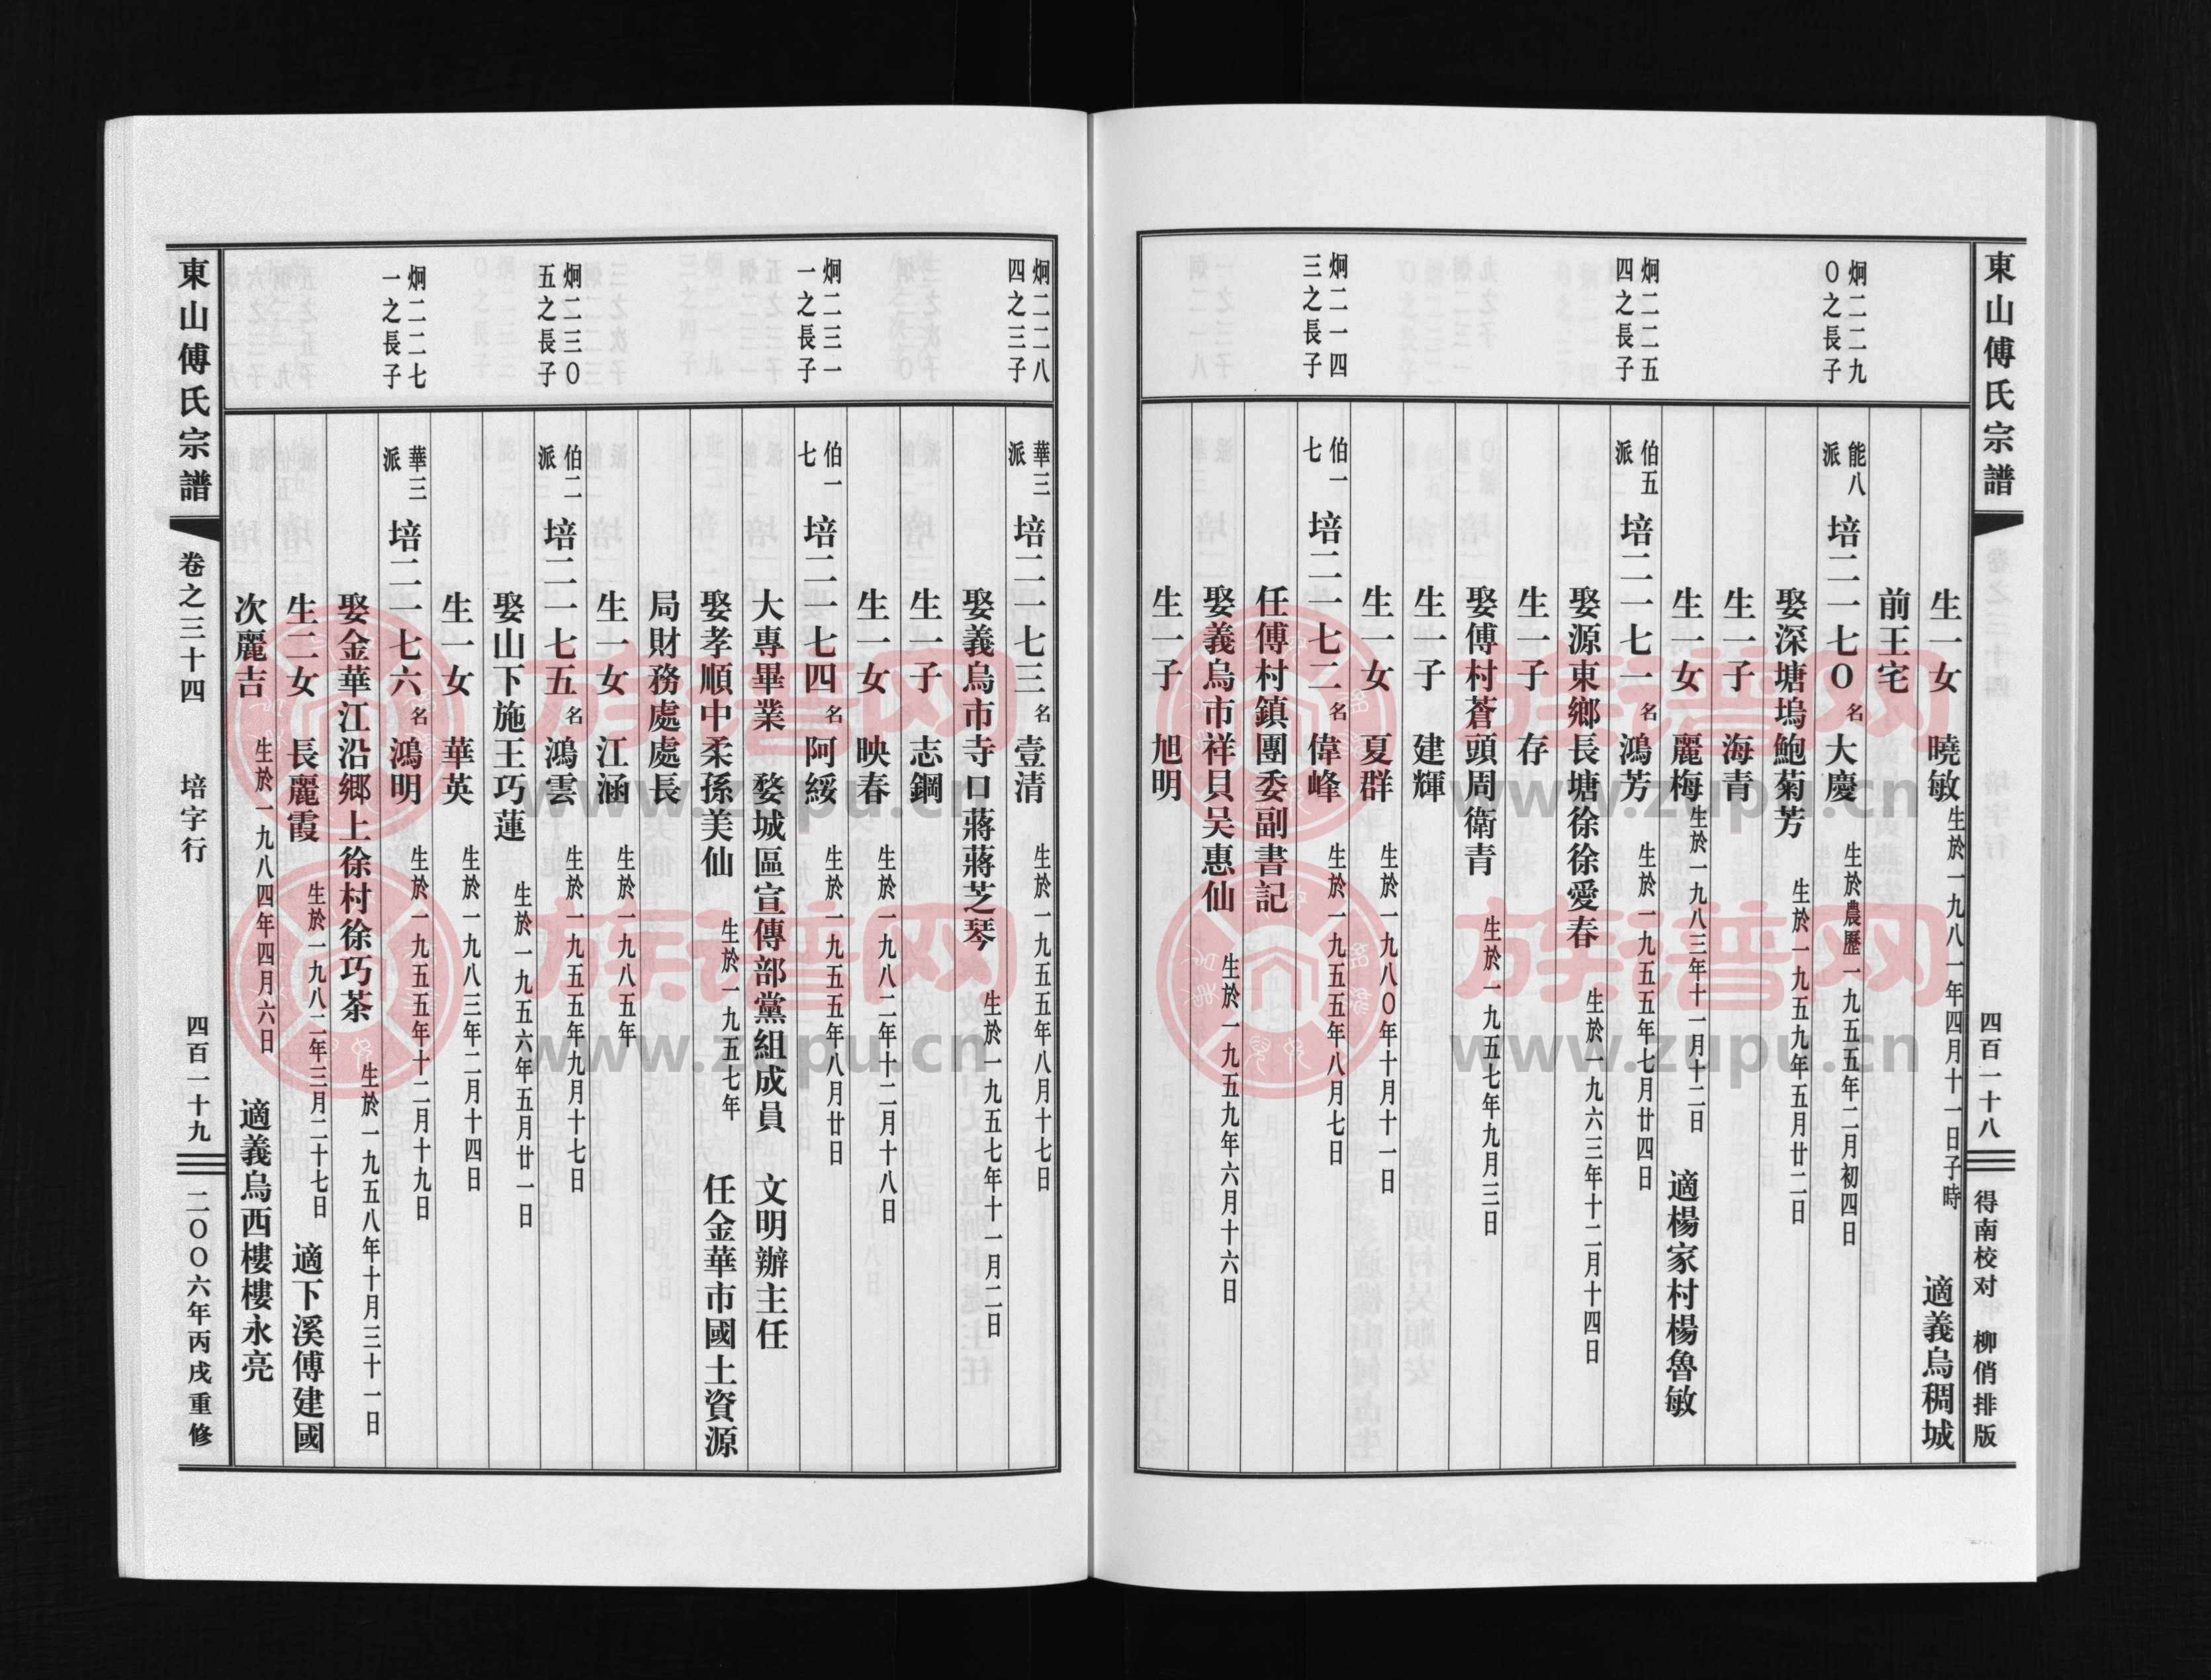 東山傅氏宗譜
四百一十八
得南校对 柳俏排版
生一女 曉敏 生於一九八一年四月十一日子時 適義烏稠城
前王宅
炯二二九〇之長子 能八派 培二一七〇 名 大慶 生於農歷一九五五年二月初四日
娶深塘塢鮑菊芳 生於一九五九年五月廿二日
生一子 海青
生一女 麗梅 生於一九八三年十一月十二日 適楊家村楊魯敏
炯二二五四之長子 伯五派 培二一七一 名 鴻芳 生於一九五五年七月廿四日
娶源東鄉長塘徐徐愛春 生於一九六三年十二月十四日
生一子 存
娶傅村蒼頭周衛青 生於一九五七年九月三日
生一子 建輝
生一女 夏群 生於一九八〇年十月十一日
炯二一四三之長子 伯一七 培二一七二 名 偉峰 生於一九五五年八月七日
任傅村鎮團委副書記
娶義烏市祥貝吴惠仙 生於一九五九年六月十六日
生一子 旭明
炯二二八四之三子 華三派 培二一七三 名 壹清 生於一九五五年八月十七日
娶義烏市寺口蔣蔣芝琴 生於一九五七年十一月二日
生一子 志鋼
生一女 映春 生於一九八二年十二月十八日
炯二三一一之長子 伯一七 培二一七四 名 阿綏 生於一九五五年八月廿日
大專畢業 婺城區宣傳部黨組成員 文明辦主任
娶孝順中柔孫美仙 生於一九五七年 任金華市國土資源
局財務處處長
生一女 江涵 生於一九八五年
炯二三〇五之長子 伯二派 培二一七五 名 鴻雲 生於一九五五年九月十七日
娶山下施王巧蓮 生於一九五六年五月廿一日
生一女 華英 生於一九八三年二月十四日
炯二二七一之長子 華三派 培二一七六 名 鴻明 生於一九五五年十二月十九日
娶金華江沿鄉上徐村徐巧茶 生於一九五八年十月三十一日
生二女 長麗霞 生於一九八二年三月二十七日 適下溪傅建國
次麗吉 生於一九八四年四月六日 適義烏西樓樓永亮
東山傅氏宗譜
卷之三十四 培字行
四百一十九
二〇〇六年丙戌重修
族谱网
www.zupu.cn
族谱网
www.zupu.cn
族谱网
www.zupu.cn
族谱网
www.zupu.cn